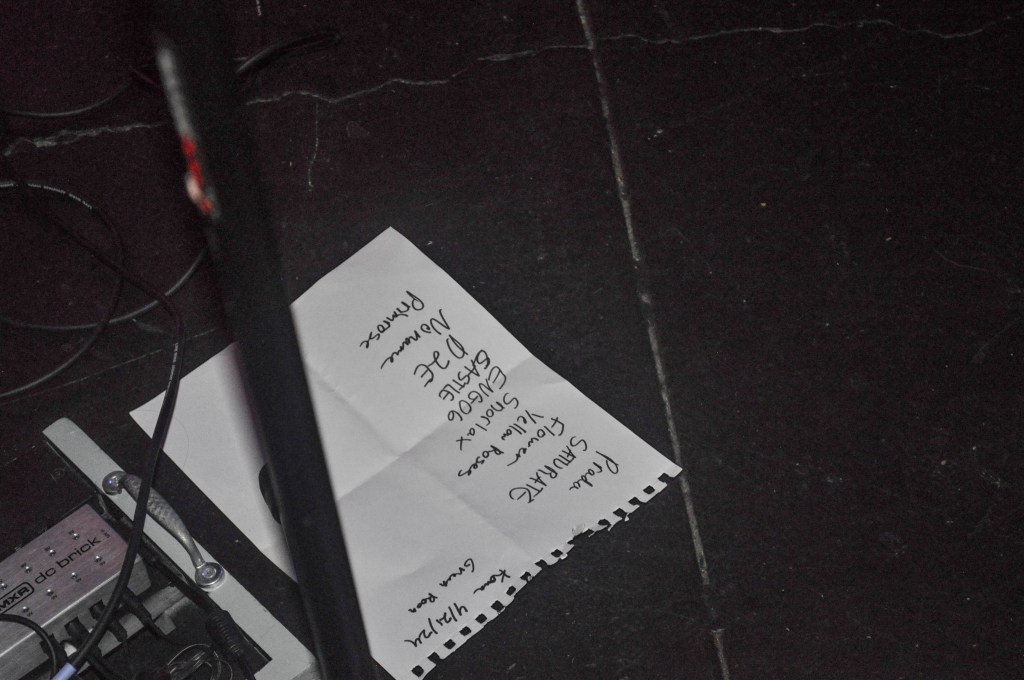 Prada
SATURATE
Flower
Yellow Roses
Snorlax
ENGO6
EASTIE
D2E
No name
Primrose
4/21/24
Green Room
MXR dc brick